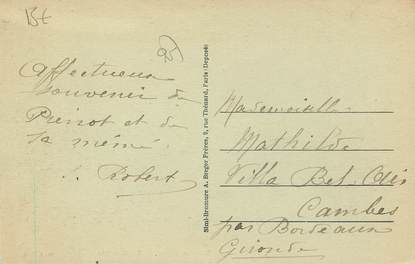 Affectueux
souvenir de
Pierrot et de
sa mémé.
Robert
Simi-Bromure A. Breger Frères, 9, rue Thénard, Paris (Déposé)
Mademoiselle
Mathilde
Villa Bel-Air
Cambes
par Bordeaux
Gironde